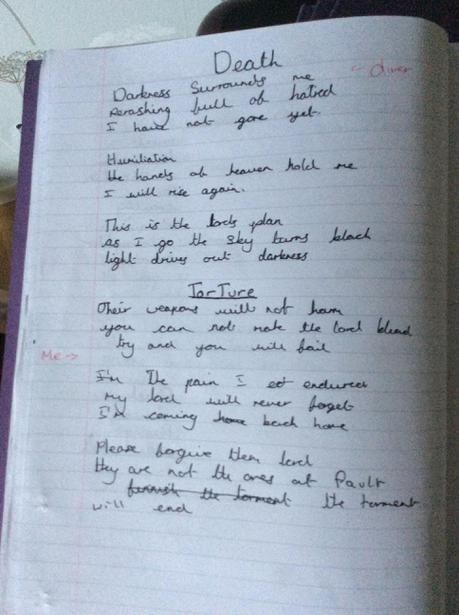 Death
← Oliver
Darkness Surrounds me
Perashing full of hatred
I have not gone yet.
Humiliation
the hands of heaven hold me
I will rise again.
This is the lords plan
as I go the sky turns black
light drives out darkness
TorTure
Their weapons will not harm
you can not make the lord bleed
try and you will fail
Me →
I'm The pain I endured
my lord will never forget
I'm coming home back home
Please forgive them lord
they are not the ones at fault
the torment the torment
will end